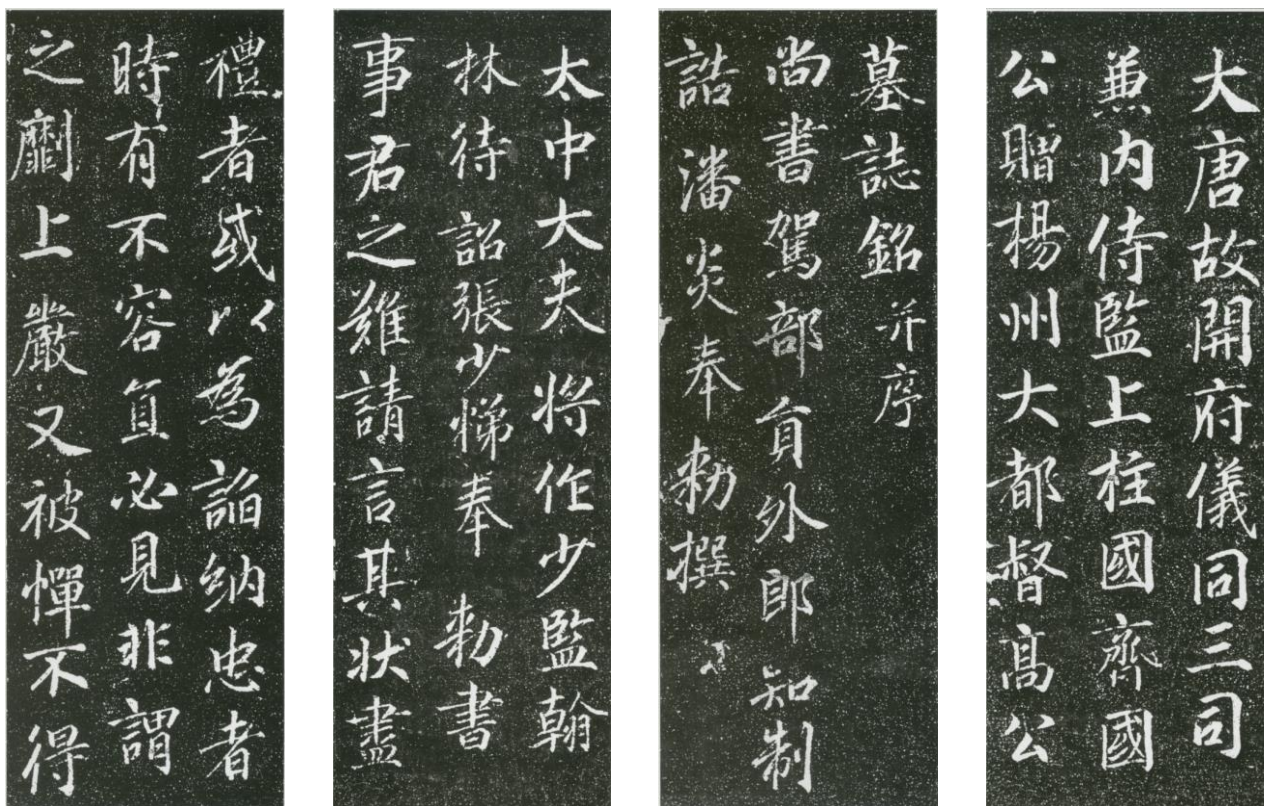 大唐故開府儀同三司
兼内侍監上柱國齊國
公贈楊州大都督高公
墓誌銘并序
尚書駕部員外郎知制
誥潘炎奉勑撰
太中大夫將作少監翰
林待詔張少悌奉勑書
事君之難請言其状盡
禮者或以為諂納忠者
時有不容直必見非謂
之劘上嚴又被憚不得